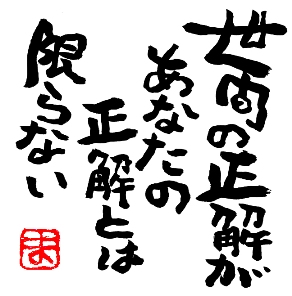 世間の正解が
あなたの
正解とは
限らない